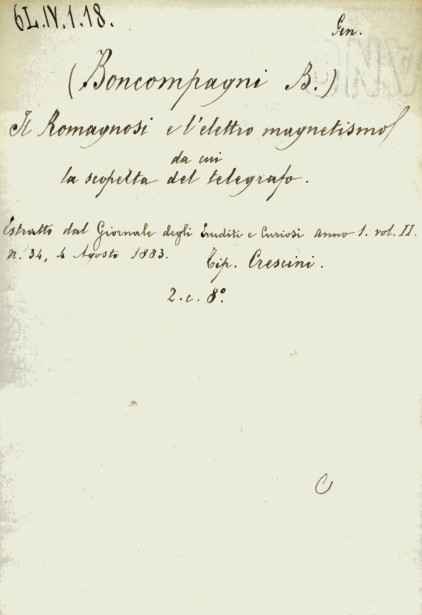 6L.IV.1.18.
Gen.
(Boncompagni B.)
Il Romagnosi e l'elettro magnetismo
da cui
la scoperta del telegrafo.
Estratto dal Giornale degli Eruditi e Curiosi Anno 1. vol. II.
n. 34, 4 Agosto 1883. Tip. Crescini.
2. c. 8º
C